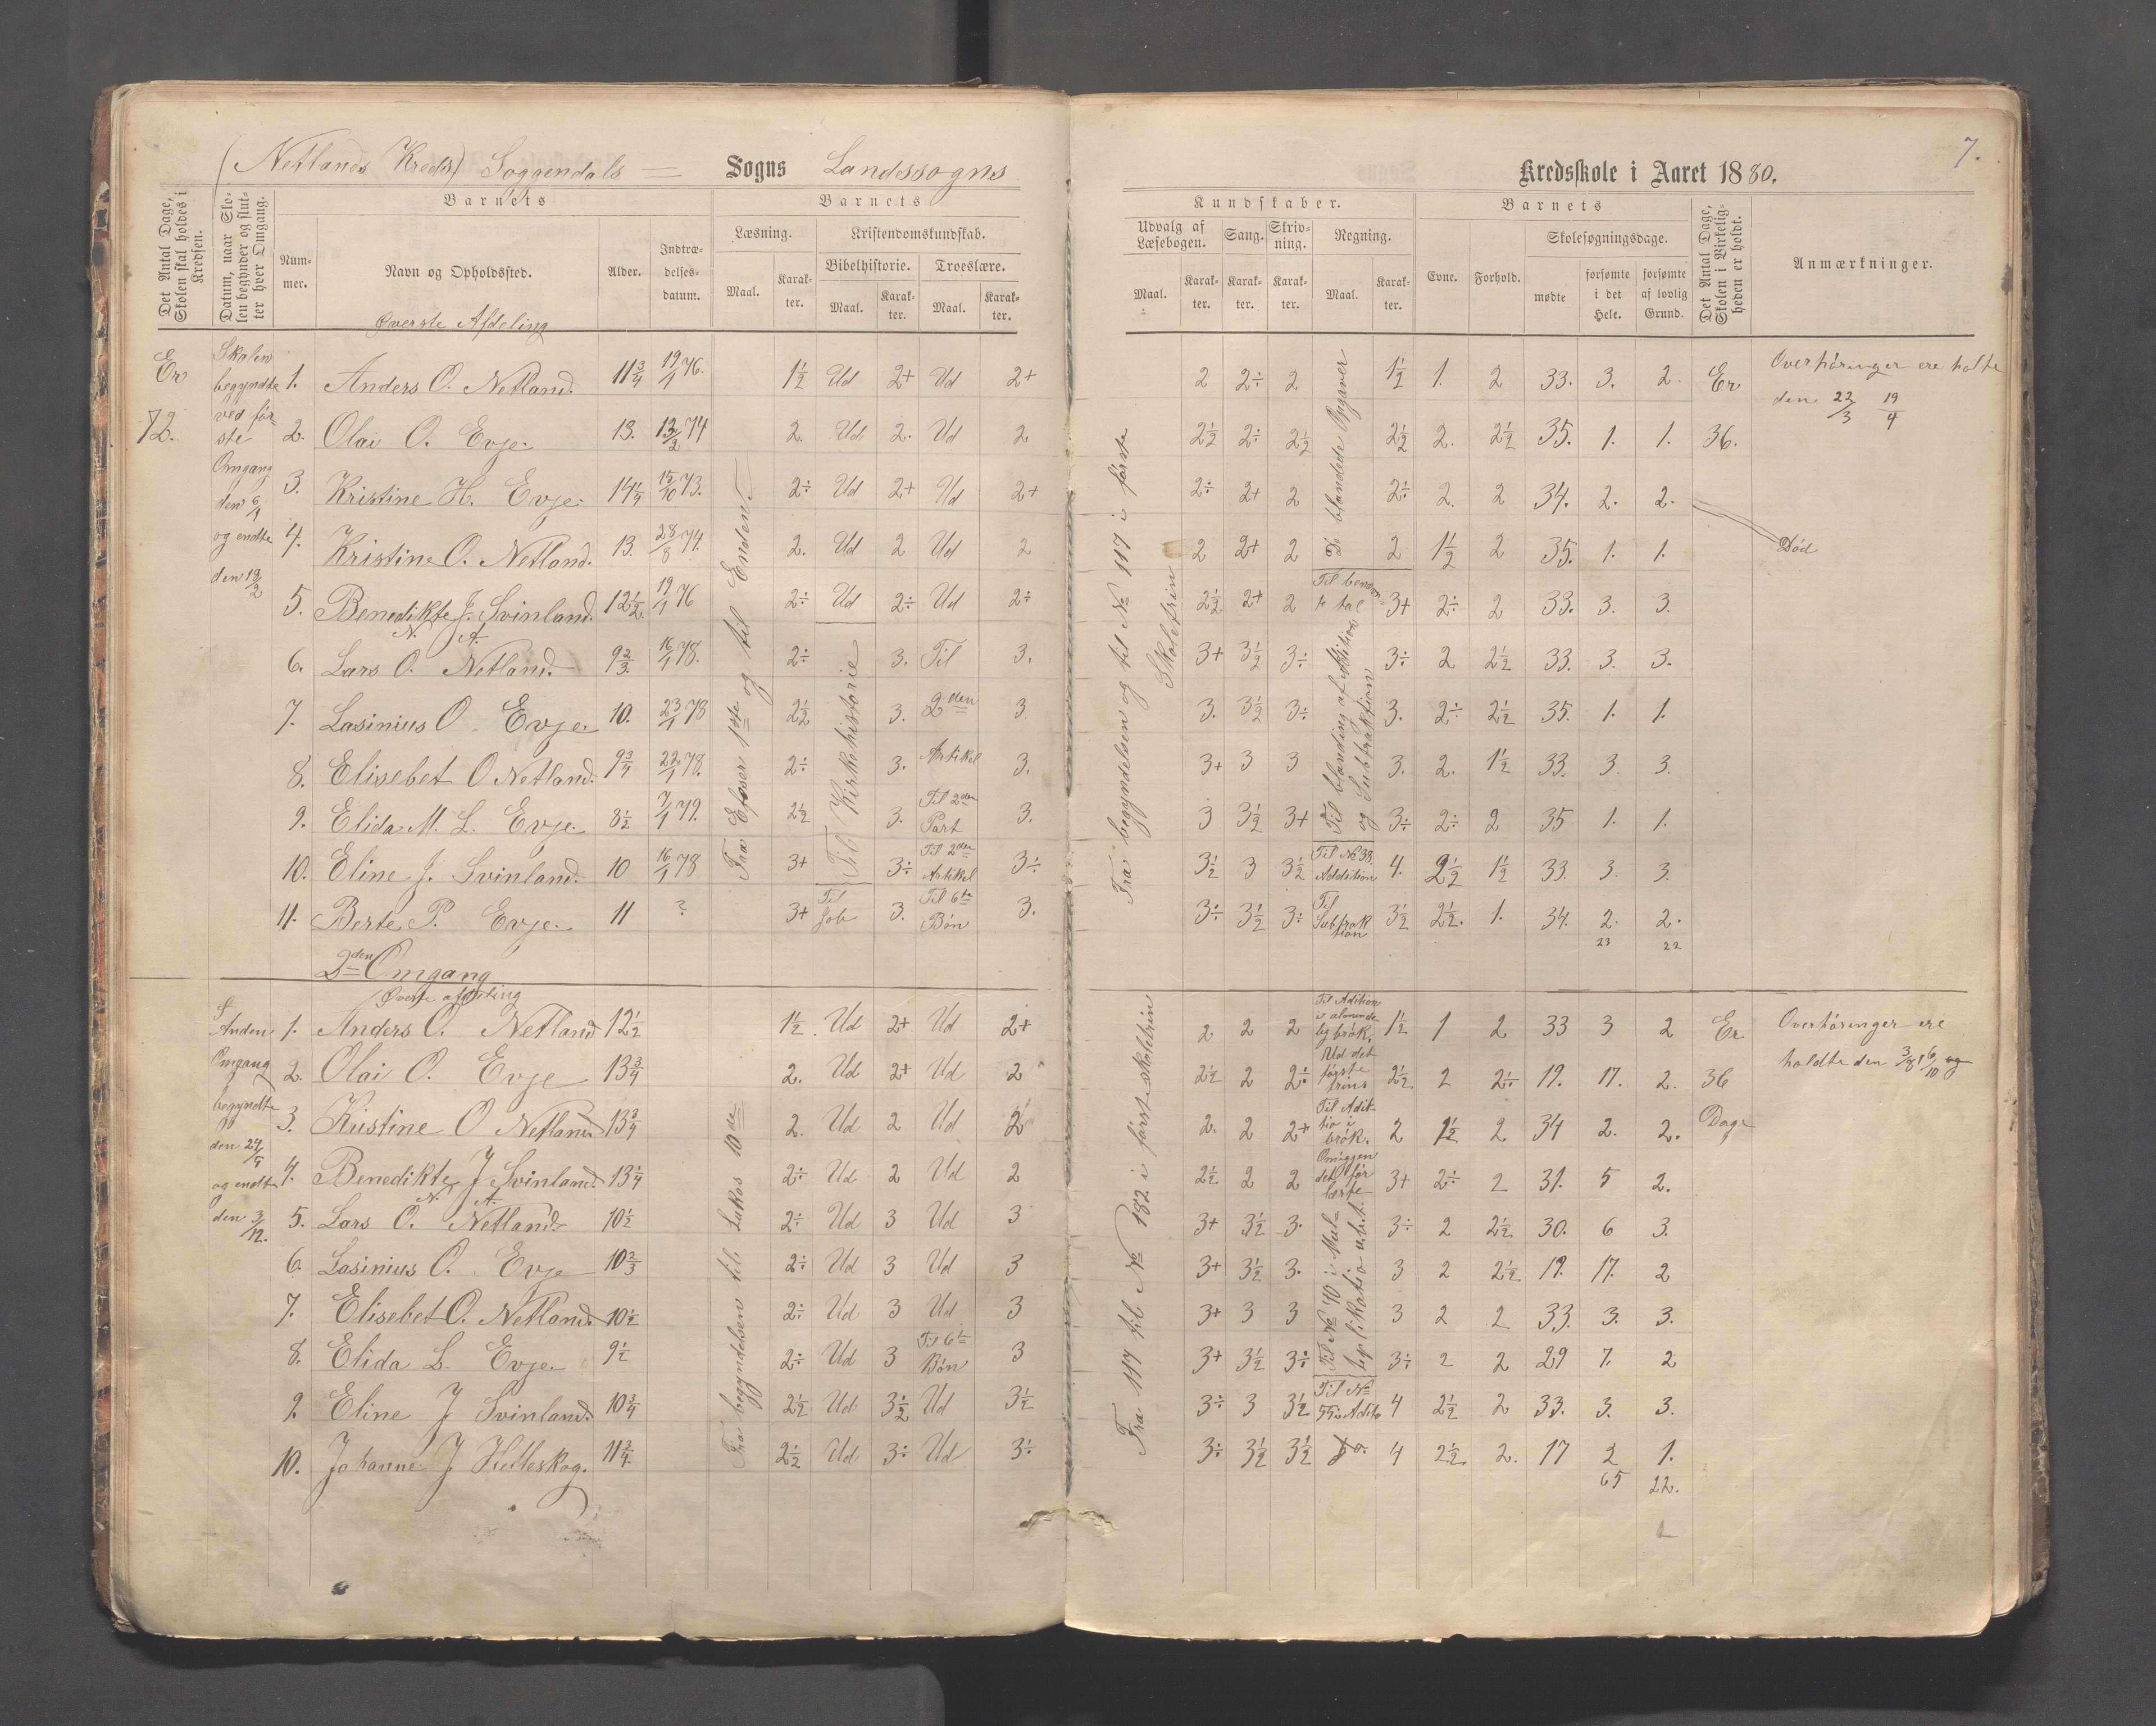 (Netlands Kreds) Soggendals = Sogns Landssogns
Kredsskole i Aaret 1880.
7.
Det Antal Dage, Skolen skal holdes i Kredsen.
Datum, naar Skolen begynder og slutter hver Omgang.
Barnets
Nummer.
Navn og Opholdssted.
Alder.
Indtrædelsesdatum.
Barnets
Læsning.
Maal.
Karakter.
Kristendomskundskab.
Bibelhistorie.
Maal.
Karakter.
Troeslære.
Maal.
Karakter.
Kundskaber.
Udvalg af Læsebogen.
Maal.
Karakter.
Sang.
Karakter.
Skrivning.
Karakter.
Regning.
Maal.
Karakter.
Barnets
Evne.
Forhold.
Skolesøgningsdage.
mødte
forsømte i det Hele.
forsømte af lovlig Grund.
Det Antal Dage, Skolen i Virkeligheden er holdt.
Anmærkninger.
Øverste Afdeling
Er
72.
Skolen
begyndte
ved før-
ste
Omgang
den 6/1
og endte
den 19/2
1. Anders O. Netland. 11 3/4 19/1 76. 1 1/2 Ud 2+ Ud 2+ 2 2÷ 2 1 1/2 1. 2 33. 3. 2. Er
2. Olai O. Evje. 13. 13/2 74 2. Ud 2. Ud 2 2 1/2 2÷ 2 1/2 2 1/2 2. 2 1/2 35. 1. 1. 36.
3. Kristine H. Evje. 14 1/4 15/10 73. 2÷ Ud 2+ Ud 2+ 2÷ 2+ 2 2÷ 2. 2 34. 2. 2.
4. Kristine O. Netland. 13. 28/8 74. 2. Ud 2 Ud 2 2 2+ 2 2 1 1/2 2 35. 1. 1. Død
5. Benedikte J. Svinland. 12 1/2. 19/1 76 2÷ Ud 2÷ Ud 2÷ 2 1/2 2+ 2 3+ 2÷ 2 33. 3. 3.
N. A.
6. Lars O. Netland. 9 2/3. 16/1 78. 2÷ 3. Til 3. 3+ 3 1/2 3÷ 3÷ 2 2 1/2 33. 3. 3.
7. Lasinius O. Evje. 10. 23/1 78 2 1/2 3. 2den 3. 3. 3 1/2 3÷ 3. 2÷ 2 1/2 35. 1. 1.
8. Elisebet O Netland. 9 3/4 22/1 78. 2÷ 3. Artikel 3. 3+ 3 3 3. 2. 1 1/2 33. 3. 3.
9. Elida M. L. Evje. 8 1/2 7/1 79. 2 1/2 3. Til 2den Part 3. 3 3 1/2 3+ 3÷ 2÷ 2 35 1. 1.
10. Eline J. Svinland. 10 16/1 78 3+ 3÷ Til 2den Artikel 3÷ 3 1/2 3 3 1/2 Til No 38. Addition 4. 2 1/2 1 1/2 33. 3. 3.
11. Berte P. Evje. 11 ? 3+ Til Job 3. Til 6te Bøn 3. 3÷ 3 1/2 3÷ Til Subtraktion 3 1/2 2 1/2. 1. 34. 2. 2.
23 22
Fra Efeser 1ste og til Enden
Til Kirkehistorie
Fra begyndelsen og til No 117 i første
Skoletrin
De blandede Opgaver
Til benævnte tal
Til blanding af Adition
og Subtraktion
Overhøringer ere holte
den 22/3 19/4
2den Omgang
Øverste afdeling
Anden
Omgang
begyndte
den
og endte
den 3/12.
1. Anders O. Netland 12 1/2 1 1/2 Ud 2+ Ud 2+ 2. 2 2 1 1/2 1 2 33 3 2 Er
2. Olai O. Evje 13 3/4 2. Ud 2+ Ud 2 2 1/2 2 2÷ 2 1/2 2 2÷ 19. 17. 2. 36
3. Kristine O Netland. 13 3/4 2. Ud 2 Ud 2 2. 2 2+ 2 1 1/2 2 34 2. 2. Dage
4. Benedikte J Svinland. 13 1/4 2÷ Ud 2 Ud 2 2 1/2 2 2 3+ 2÷ 2 31. 5 2.
N. A.
5. Lars O. Netland. 10 1/2 2÷ Ud 3 Ud 3 3+ 3 1/2 3. 3÷ 2 2 1/2 30. 6 3.
6. Lasinius O. Evje 10 2/3 2÷ Ud 3 Ud 3 3+ 3 1/2 3. 3 2 2 1/2. 19. 17. 2
7. Elisebet O. Netland. 10 1/2 2÷ Ud 3 Ud 3 3+ 3 3 3 2 2 33. 3. 3.
8. Elida L. Evje. 9 1/2 2÷ Ud 3 Til 6te Bøn 3 3+ 3 1/2 3÷ 3÷ 2 2 29 7. 2
9. Eline J Svinland. 10 3/4 2 1/2 Ud 3 1/2 Ud 3 1/2 3÷ 3 3 1/2 4 2 1/2 2 33. 3. 3.
10. Johanne J Hulleskog. 11 3/4. 2 1/2 Ud 3÷ Ud 3÷ 3÷ 3 1/2 3 1/2 4 2 1/2. 2. 17 2 1.
65 22.
Fra begyndelsen til Lukas 10de
Fra 117 til No 182 i første skoletrin
Til Adition i almindelig brøk.
Ud det første trins
Til Adition i brøk.
Til No 40 i Multiplikation u.b.t.
Overhøringer ere
holdte den 3/8